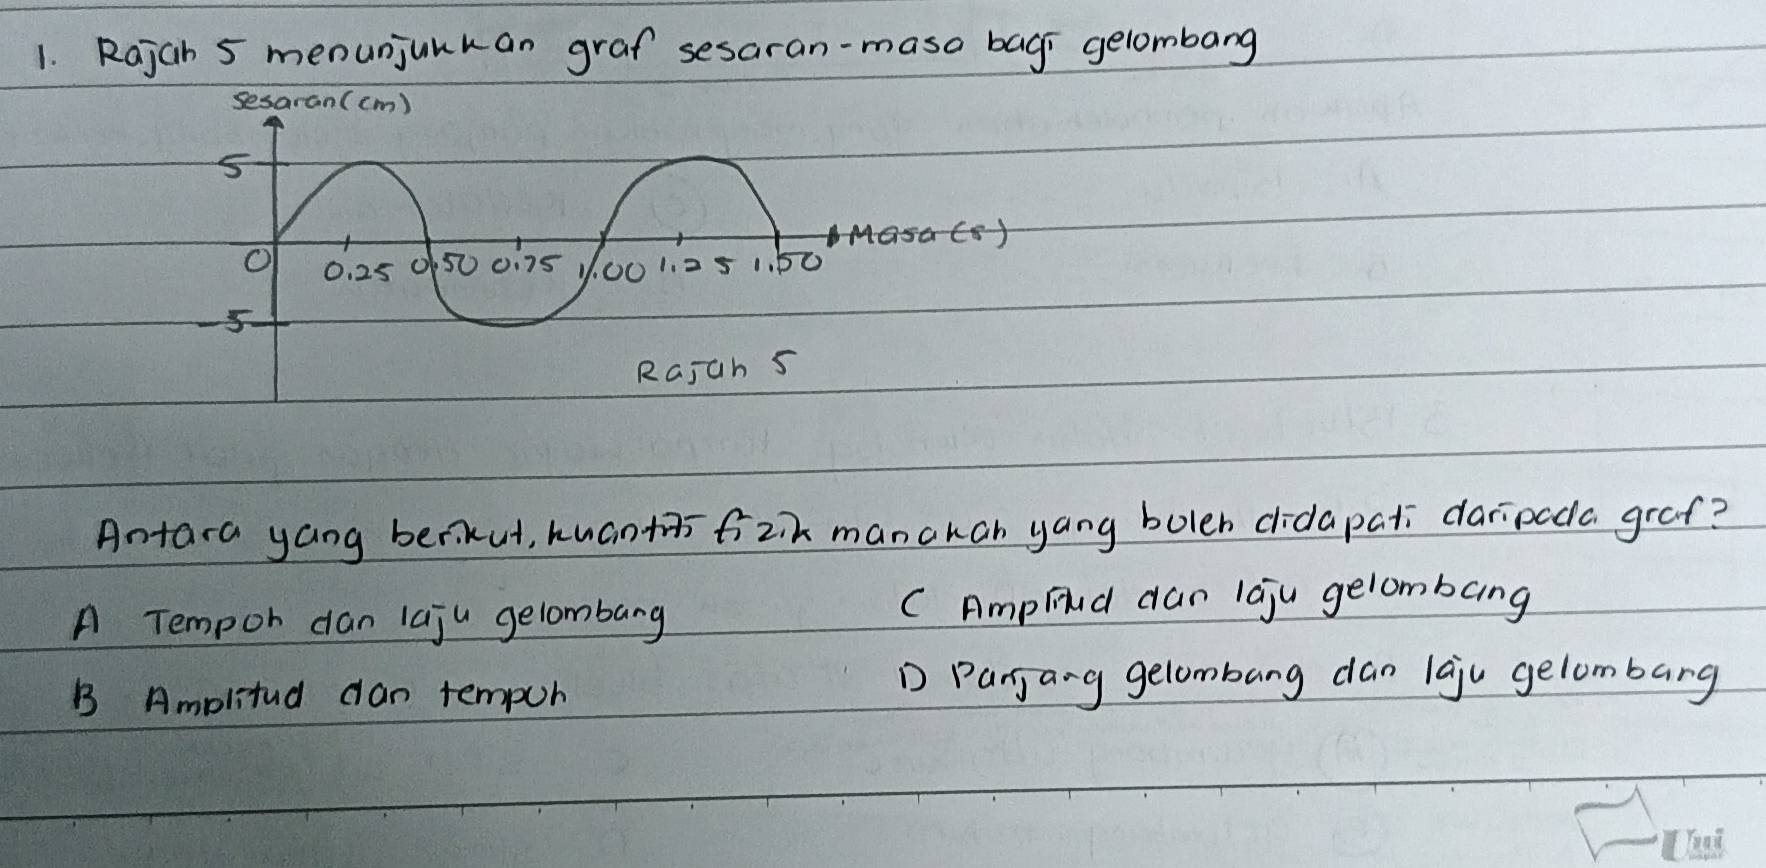 1. Rajah 5 menunjukkan graf sesaran-masa bagi gelombang
sesaran(cm)
5
Masa(s)
0 0.25 0.50 0.75 1.00 1.25 1.50
-5
Rajah 5
Antara yang berikut, kuantiti fizik manakah yang boleh didapati daripada graf?
A Tempoh dan laju gelombang
C Amplitud dan laju gelombang
B Amplitud dan tempoh
D Panjang gelombang dan laju gelombang
Uni